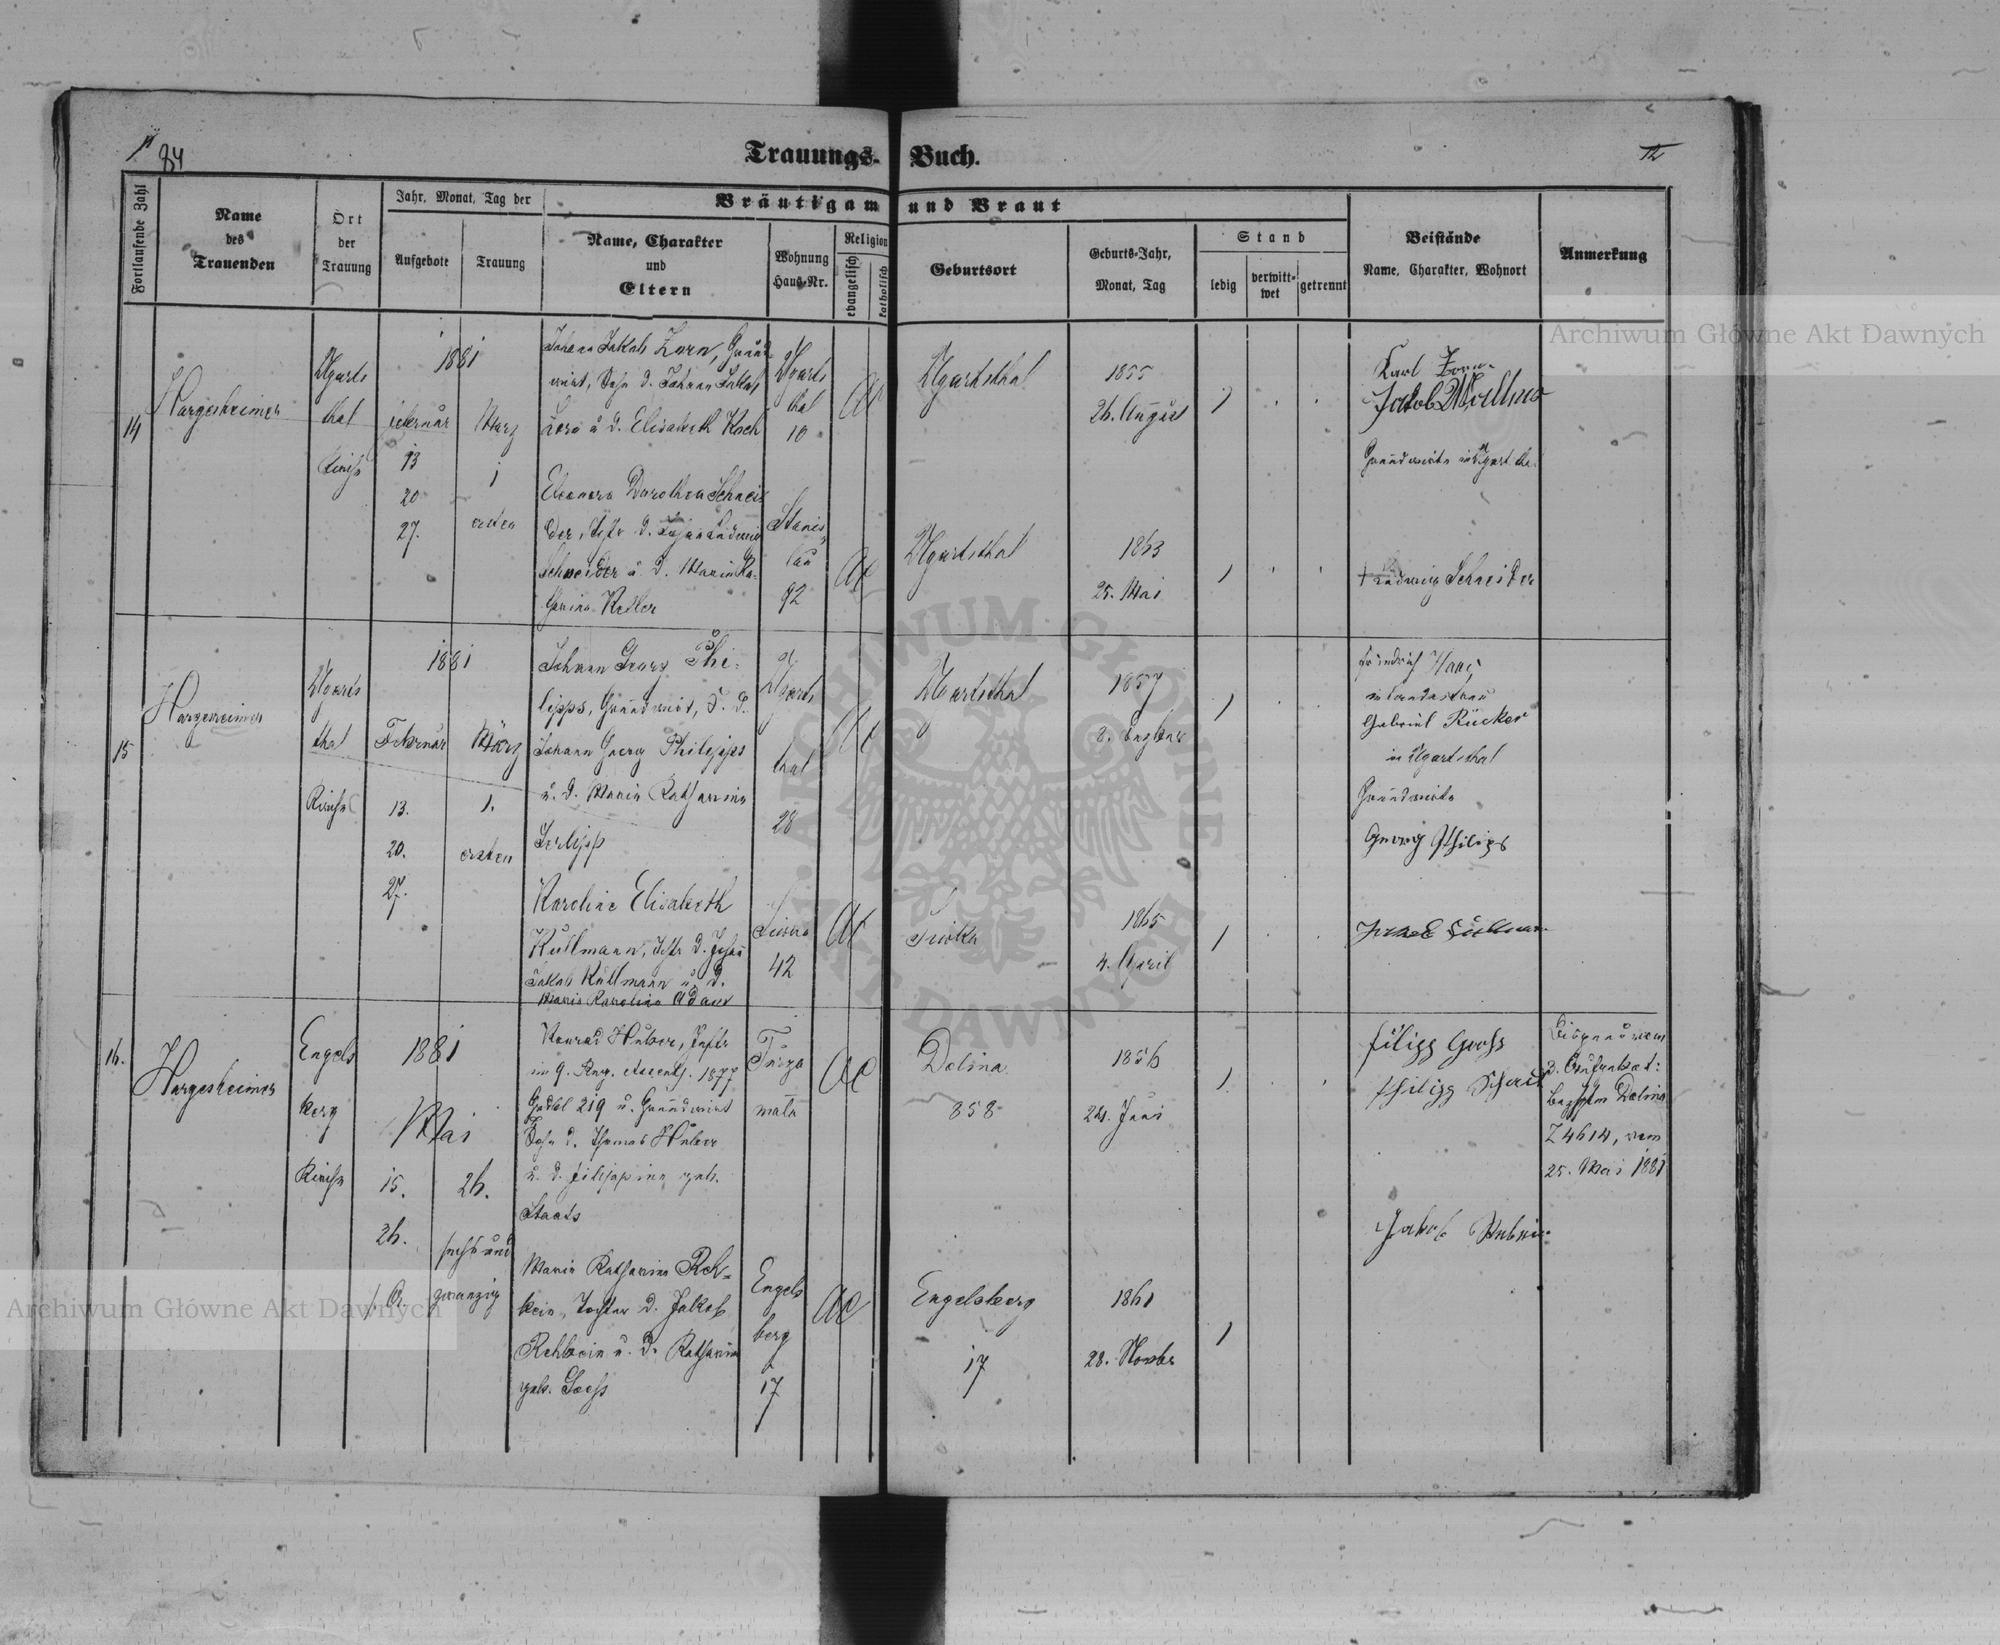 84
Trauungs-Buch.
12
Fortlaufende Zahl
Name
des
Trauenden
Ort
der
Trauung
Jahr, Monat, Tag der
Aufgebote
Trauung
Bräutigam und Braut
Name, Charakter
und
Eltern
Wohnung
Haus-Nr.
Religion
evangelisch
katholisch
Geburtsort
Geburts-Jahr,
Monat, Tag
Stand
ledig
verwitt-
wet
getrennt
Beistände
Name, Charakter, Wohnort
Anmerkung
Archiwum Główne Akt Dawnych
14
Hargesheimer
Ugarts
thal
Kirche
1881
Februar
13
20
27.
März
1
ersten
Johann Jakob Zorn, Grund
wirt, Sohn d. Johann Jakob
Zorn u d. Elisabeth Koch
Ugarts
thal
10
AC
Ugartsthal
1855
26. August
Karl Zorn
Jakob Wollmer
Grundwirte in Ugartsthal
Eleonora Dorothea Schnei-
der, Tochtr d. Johann Ludwig
Schneider u. d. Maria Ka-
tharina Keller
Stanis
lau
92
AC
Ugartsthal
1863
25. Mai
+ Ludwig Schneider
15
Hargesheimer
Ugarts
thal
Kirche
1881
Februar
13.
20.
27.
März
1.
ersten
Johann Georg Phi-
lipps, Grundwirt, S. d.
Johann Georg Philipps
u. d. Maria Katharina
Ugarts
thal
28
AC
Ugartsthal
1857
Friedrich Haas,
in Landestreu
Gabriel Rücker
in Ugartsthal
Grundwirte
Georg Philips
Karoline Elisabeth
Kullmann, Tochtr d. Johan
Jakob Kullmann u. d.
Maria Karolina Adam
Siwka
42
AC
Siwka
1865
4. April
16.
Hargesheimer
Engels
berg
Kirche
1881
Mai
15.
26.
26.
sechs und
zwanzig
Konrad Huber, Inftr
im 9. Reg. 1877
219 u. Grundwirt
Sohn d. Thomas Huber
u. d. Filippina geb.
Staads
Turza
mała
AC
Dolina
858
1856
24. Juni
Filipp Gross
Philipp Scherer
vom
Dolina
Z 4614, vom
25. Mai 1881
Maria Katharina Reh-
bein, Tochter d. Jakob
Rehbein u. d. Katharina
geb.
Engels
berg
17
AC
Engelsberg
17
1861
28. Novber
Jakob
ARCHIWUM GŁÓWNE AKT DAWNYCH
Archiwum Główne Akt Dawnych